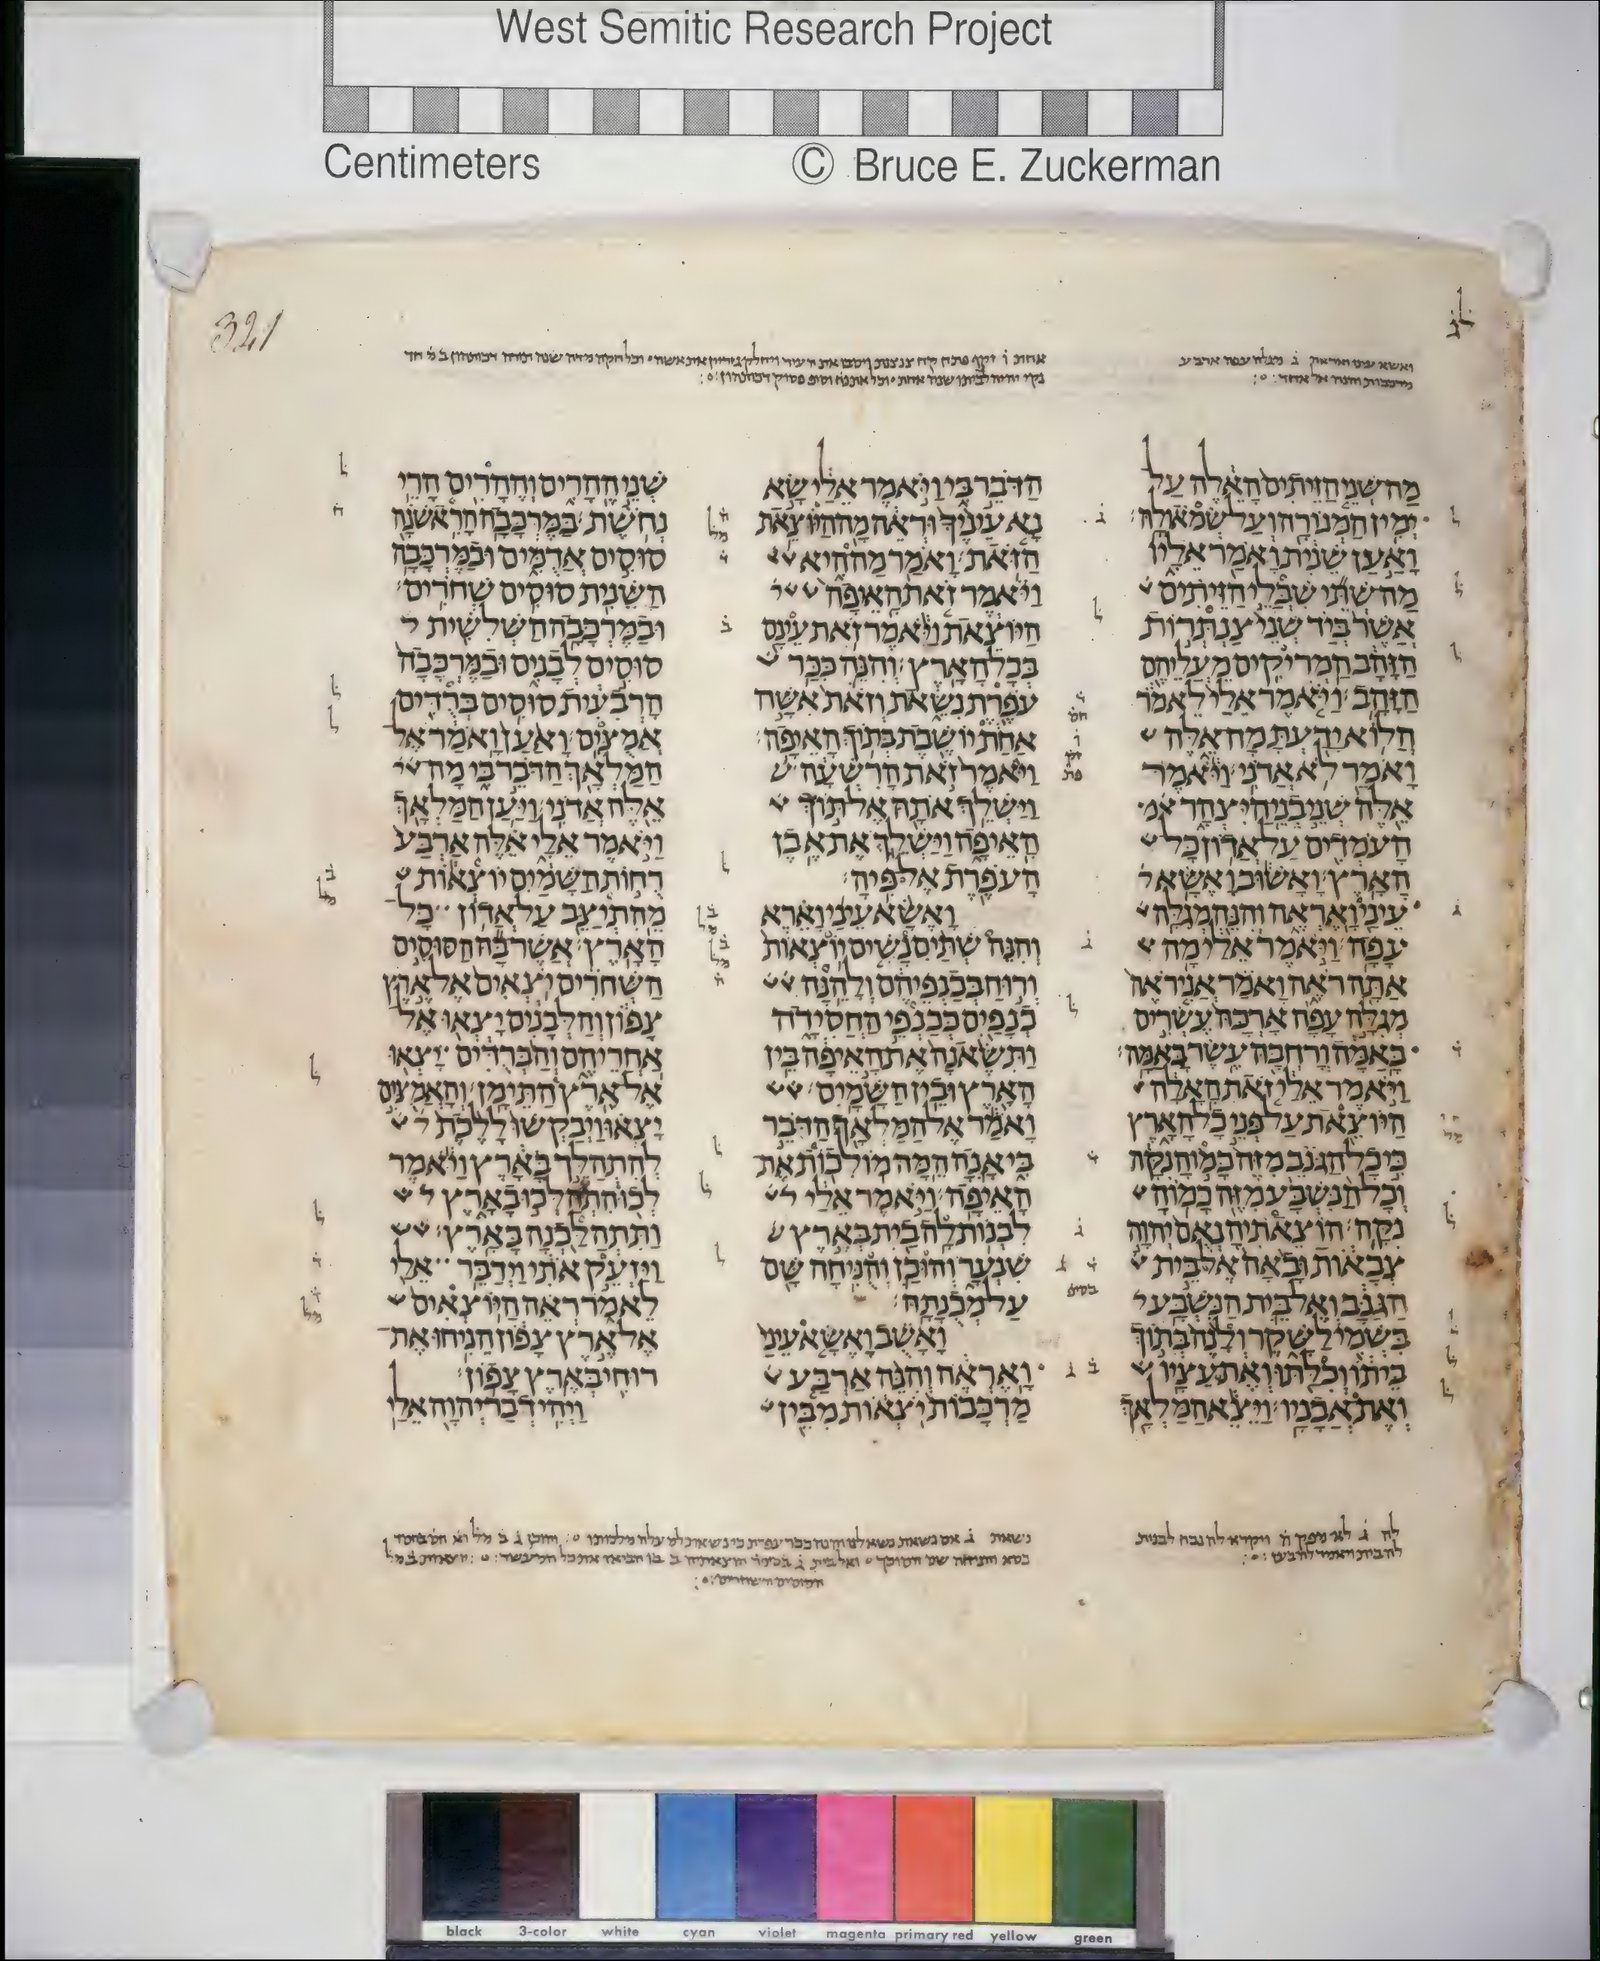 West Semitic Research Project
Centimeters © Bruce E. Zuckerman
321
מַה שְּׁנֵי הַזֵּיתִים הָאֵלֶּה עַל
יְמִין הַמְּנוֹרָה וְעַל שְׂמֹאולָהּ׃
וָאַעַן שֵׁנִית וָאֹמַר אֵלָיו
מַה שְׁתֵּי שִׁבֲּלֵי הַזֵּיתִים
אֲשֶׁר בְּיַד שְׁנֵי צַנְתְּרוֹת
הַזָּהָב הַמְרִיקִים מֵעֲלֵיהֶם
הַזָּהָב׃ וַיֹּאמֶר אֵלַי לֵאמֹר
הֲלוֹא יָדַעְתָּ מָה אֵלֶּה
וָאֹמַר לֹא אֲדֹנִי׃ וַיֹּאמֶר
אֵלֶּה שְׁנֵי בְנֵי הַיִּצְהָר
הָעֹמְדִים עַל אֲדוֹן כָּל
הָאָרֶץ׃ וָאָשׁוּב וָאֶשָּׂא
עֵינַי וָאֶרְאֶה וְהִנֵּה מְגִלָּה
עָפָה׃ וַיֹּאמֶר אֵלַי מָה
אַתָּה רֹאֶה וָאֹמַר אֲנִי רֹאֶה
מְגִלָּה עָפָה אָרְכָּהּ עֶשְׂרִים
בָּאַמָּה וְרָחְבָּהּ עֶשֶׂר בָּאַמָּה׃
וַיֹּאמֶר אֵלַי זֹאת הָאָלָה
הַיּוֹצֵאת עַל פְּנֵי כָל הָאָרֶץ
כִּי כָל הַגֹּנֵב מִזֶּה כָּמוֹהָ נִקָּה
וְכָל הַנִּשְׁבָּע מִזֶּה כָּמוֹהָ
נִקָּה׃ הוֹצֵאתִיהָ נְאֻם יְהוָה
צְבָאוֹת וּבָאָה אֶל בֵּית
הַגַּנָּב וְאֶל בֵּית הַנִּשְׁבָּע
בִּשְׁמִי לַשָּׁקֶר וְלָנֶה בְּתוֹךְ
בֵּיתוֹ וְכִלַּתּוּ וְאֶת עֵצָיו
וְאֶת אֲבָנָיו׃ וַיֵּצֵא הַמַּלְאָךְ
הַדֹּבֵר בִּי וַיֹּאמֶר אֵלַי שָׂא
נָא עֵינֶיךָ וּרְאֵה מָה הַיּוֹצֵאת
הַזֹּאת׃ וָאֹמַר מַה הִיא
וַיֹּאמֶר זֹאת הָאֵיפָה
הַיּוֹצֵאת וַיֹּאמֶר זֹאת עֵינָם
בְּכָל הָאָרֶץ׃ וְהִנֵּה כִּכַּר
עֹפֶרֶת נִשֵּׂאת וְזֹאת אִשָּׁה
אַחַת יוֹשֶׁבֶת בְּתוֹךְ הָאֵיפָה׃
וַיֹּאמֶר זֹאת הָרִשְׁעָה
וַיַּשְׁלֵךְ אֹתָהּ אֶל תּוֹךְ
הָאֵיפָה וַיַּשְׁלֵךְ אֶת אֶבֶן
הָעֹפֶרֶת אֶל פִּיהָ׃
וָאֶשָּׂא עֵינַי וָאֵרֶא
וְהִנֵּה שְׁתַּיִם נָשִׁים יוֹצְאוֹת
וְרוּחַ בְּכַנְפֵיהֶם וְלָהֵנָּה
כְנָפַיִם כְּכַנְפֵי הַחֲסִידָה
וַתִּשֶּׂאנָה אֶת הָאֵיפָה בֵּין
הָאָרֶץ וּבֵין הַשָּׁמָיִם׃
וָאֹמַר אֶל הַמַּלְאָךְ הַדֹּבֵר
בִּי אָנָה הֵמָּה מוֹלִכוֹת אֶת
הָאֵיפָה׃ וַיֹּאמֶר אֵלַי
לִבְנוֹת לָהֿ בַיִת בְּאֶרֶץ
שִׁנְעָר וְהוּכַן וְהֻנִּיחָה שָּׁם
עַל מְכֻנָתָהּ׃
וָאָשֻׁב וָאֶשָּׂא עֵינַי
וָאֶרְאֶה וְהִנֵּה אַרְבַּע
מַרְכָּבוֹת יֹצְאוֹת מִבֵּין
שְׁנֵי הֶהָרִים וְהֶהָרִים הָרֵי
נְחֹשֶׁת׃ בַּמֶּרְכָּבָה הָרִאשֹׁנָה
סוּסִים אֲדֻמִּים וּבַמֶּרְכָּבָה
הַשֵּׁנִית סוּסִים שְׁחֹרִים׃
וּבַמֶּרְכָּבָה הַשְּׁלִשִׁית
סוּסִים לְבָנִים וּבַמֶּרְכָּבָה
הָרְבִעִית סוּסִים בְּרֻדִּים
אֲמֻצִּים׃ וָאַעַן וָאֹמַר אֶל
הַמַּלְאָךְ הַדֹּבֵר בִּי מָה
אֵלֶּה אֲדֹנִי׃ וַיַּעַן הַמַּלְאָךְ
וַיֹּאמֶר אֵלָי אֵלֶּה אַרְבַּע
רֻחוֹת הַשָּׁמַיִם יוֹצְאוֹת
מֵהִתְיַצֵּב עַל אֲדוֹן כָּל
הָאָרֶץ׃ אֲשֶׁר בָּהּ הַסּוּסִים
הַשְּׁחֹרִים יֹצְאִים אֶל אֶרֶץ
צָפוֹן וְהַלְּבָנִים יָצְאוּ אֶל
אַחֲרֵיהֶם וְהַבְּרֻדִּים יָצְאוּ
אֶל אֶרֶץ הַתֵּימָן׃ וְהָאֲמֻצִּים
יָצְאוּ וַיְבַקְשׁוּ לָלֶכֶת
לְהִתְהַלֵּךְ בָּאָרֶץ וַיֹּאמֶר
לְכוּ הִתְהַלְּכוּ בָאָרֶץ
וַתִּתְהַלַּכְנָה בָּאָרֶץ׃
וַיַּזְעֵק אֹתִי וַיְדַבֵּר אֵלַי
לֵאמֹר רְאֵה הַיּוֹצְאִים
אֶל אֶרֶץ צָפוֹן הֵנִיחוּ אֶת
רוּחִי בְּאֶרֶץ צָפוֹן׃
וַיְהִי דְבַר יְהוָה אֵלַי
black 3-color white cyan violet magenta primary red yellow green